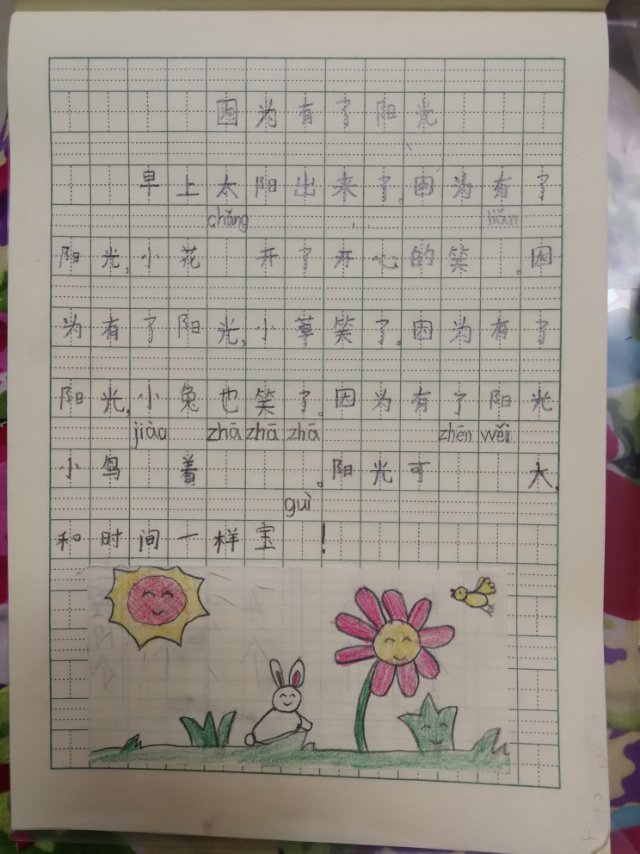 因为有了阳光
早上太阳出来了。因为有了
chǎng liǎn
阳光,小花 开了开心的笑 。因
为有了阳光,小草笑了。因为有了
阳光,小兔也笑了。因为有了阳光
jiào zhā zhā zhā zhēn wěi
小鸟 着 。阳光可 大,
guì
和时间一样宝 !